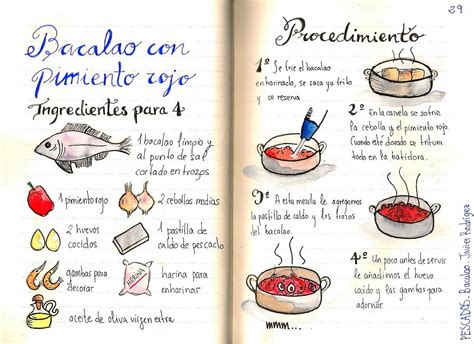 Bacalao con
pimiento rojo
Ingredientes para 4
1 bacalao limpio y
al punto de sal
cortado en trozos
1 pimiento rojo
2 cebollas medias
2 huevos
cocidos
1 pastilla de
caldo de pescado
gambas para
decorar
HARINA
harina para
enharinar
aceite de oliva virgen extra
29
Procedimiento
1º Se frie el bacalao
enharinado, se saca ya frito
y se reserva
2º En la cazuela se sofrie
la cebolla y el pimiento rojo.
Cuando esté dorado se tritura
todo en la batidora.
3º A esta mezcla le agregamos
la pastilla de caldo y los trozos
del bacalao.
4º Un poco antes de servir
le añadimos el huevo
cocido y las gambas para
adornar
mmm....
PESCADOS. Bacalao. Javier Rodríguez